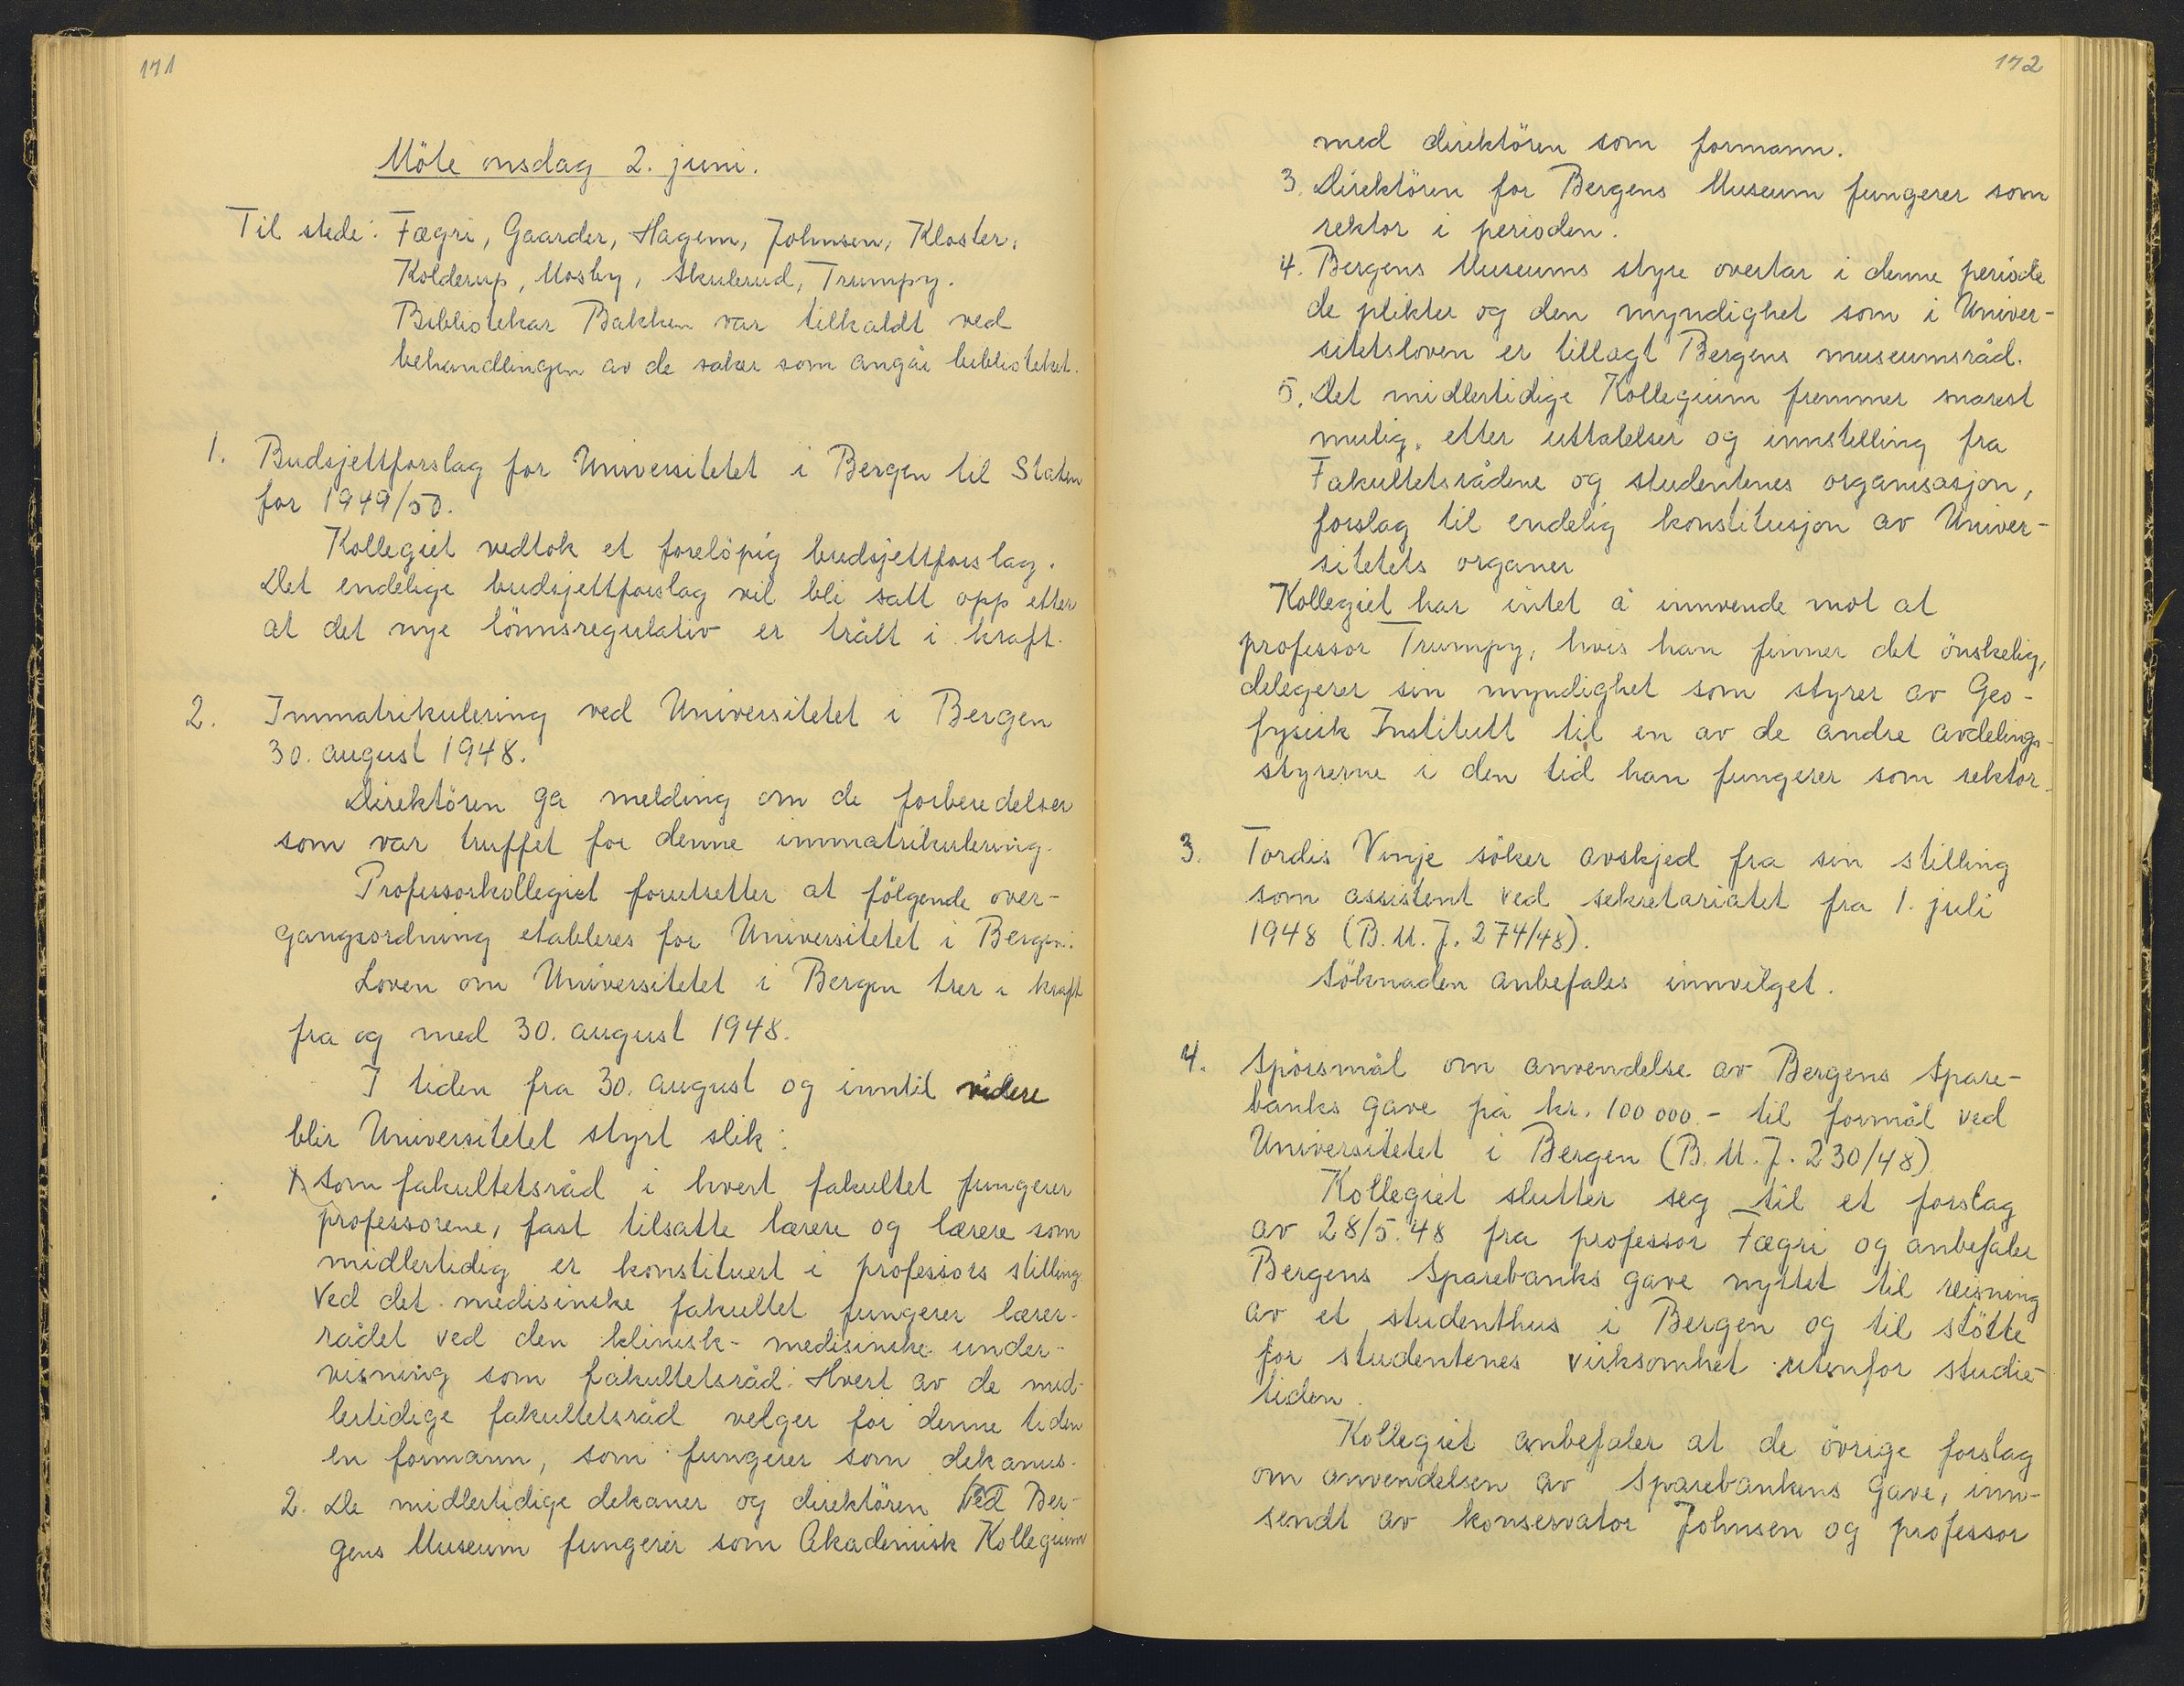 171
Möte onsdag 2. juni.
Til stede: Fægri, Gaarder, Hagem, Johnsen, Kloster,
Kolderup, Mosby, Skulerud, Trumpy.
Bibliotekar Bakken var tilkaldt ved
behandlingen av de saker som angår biblioteket.
1. Budsjettforslag for Universitetet i Bergen til Staten
for 1949/50.
Kollegiet vedtok et forelöpig budsjettforslag.
Det endelige budsjettforslag vil bli satt opp etter
at det nye lönnsregulativ er trått i kraft.
2. Immatrikulering ved Universitetet i Bergen
30. august 1948.
Direktören ga melding om de forberedelser
som var truffet for denne immatrikulering.
Professorkollegiet forutsetter at fölgende over-
gangsordning etableres for Universitetet i Bergen:
Loven om Universitetet i Bergen trer i kraft
fra og med 30. august 1948.
I tiden fra 30. august og inntil videre
blir Universitetet styrt slik:
1. Som fakultetsråd i hvert fakultet fungerer
professorene, fast tilsatte lærere og lærere som
midlertidig er konstituert i professors stilling.
Ved det medisinske fakultet fungerer lærer-
rådet ved den klinisk-medisinske under-
visning som fakultetsråd. Hvert av de mid-
lertidige fakultetsråd velger for denne tiden
en formann, som fungerer som dekanus.
2. De midlertidige dekaner og direktören ved Ber-
gens Museum fungerer som Akademisk Kollegium
172
med direktören som formann.
3. Direktören for Bergens Museum fungerer som
rektor i perioden.
4. Bergens Museums styre overtar i denne periode
de plikter og den myndighet som i Univer-
sitetsloven er tillagt Bergens museumsråd.
5. Det midlertidige Kollegium fremmer snarest
mulig, etter uttalelser og innstilling fra
Fakultetsrådene og studentenes organisasjon,
forslag til endelig konstitusjon av Univer-
sitetets organer
Kollegiet har intet å innvende mot at
professor Trumpy, hvis han finner det önskelig,
delegerer sin myndighet som styrer av Geo-
fysisk Institutt til en av de andre avdelings-
styrerne i den tid han fungerer som rektor.
3. Tordis Vinje söker avskjed fra sin stilling
som assistent ved sekretariatet fra 1. juli
1948 (B.M.J. 274/48).
Söknaden anbefales innvilget.
4. Spörsmål om anvendelse av Bergens Spare-
banks gave på kr. 100 000.- til formål ved
Universitetet i Bergen (B.M.J. 230/48)
Kollegiet slutter seg til et forslag
av 28/5.48 fra professor Fægri og anbefaler
Bergens Sparebanks gave nyttet til reisning
av et studenthus i Bergen og til stötte
for studentenes virksomhet utenfor studie-
tiden.
Kollegiet anbefaler at de övrige forslag
om anvendelsen av Sparebankens gave, inn-
sendt av konservator Johnsen og professor